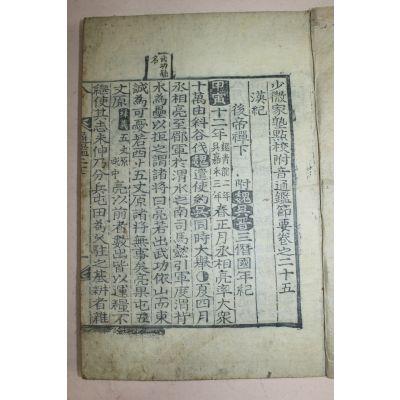 武功縣名
少微家塾點校附音通鑑節要卷之二十五
漢紀
後帝禪下 附魏吳晉三僭國年紀
甲寅十二年魏青龍二年吳嘉禾三年春正月丞相亮率大衆
十萬由斜谷伐魏遣使約吳同時大擧○夏四月
丞相亮至郿軍於渭水之南司馬懿引軍度渭背
水為壘以拒之謂諸將曰亮若出武功依山而東
誠為可憂若西上五丈原諸將無事矣亮果屯五
丈原 五丈原 亮以前者數出皆以運糧不
繼使其志未伸乃分兵屯田為久駐之基耕者雜